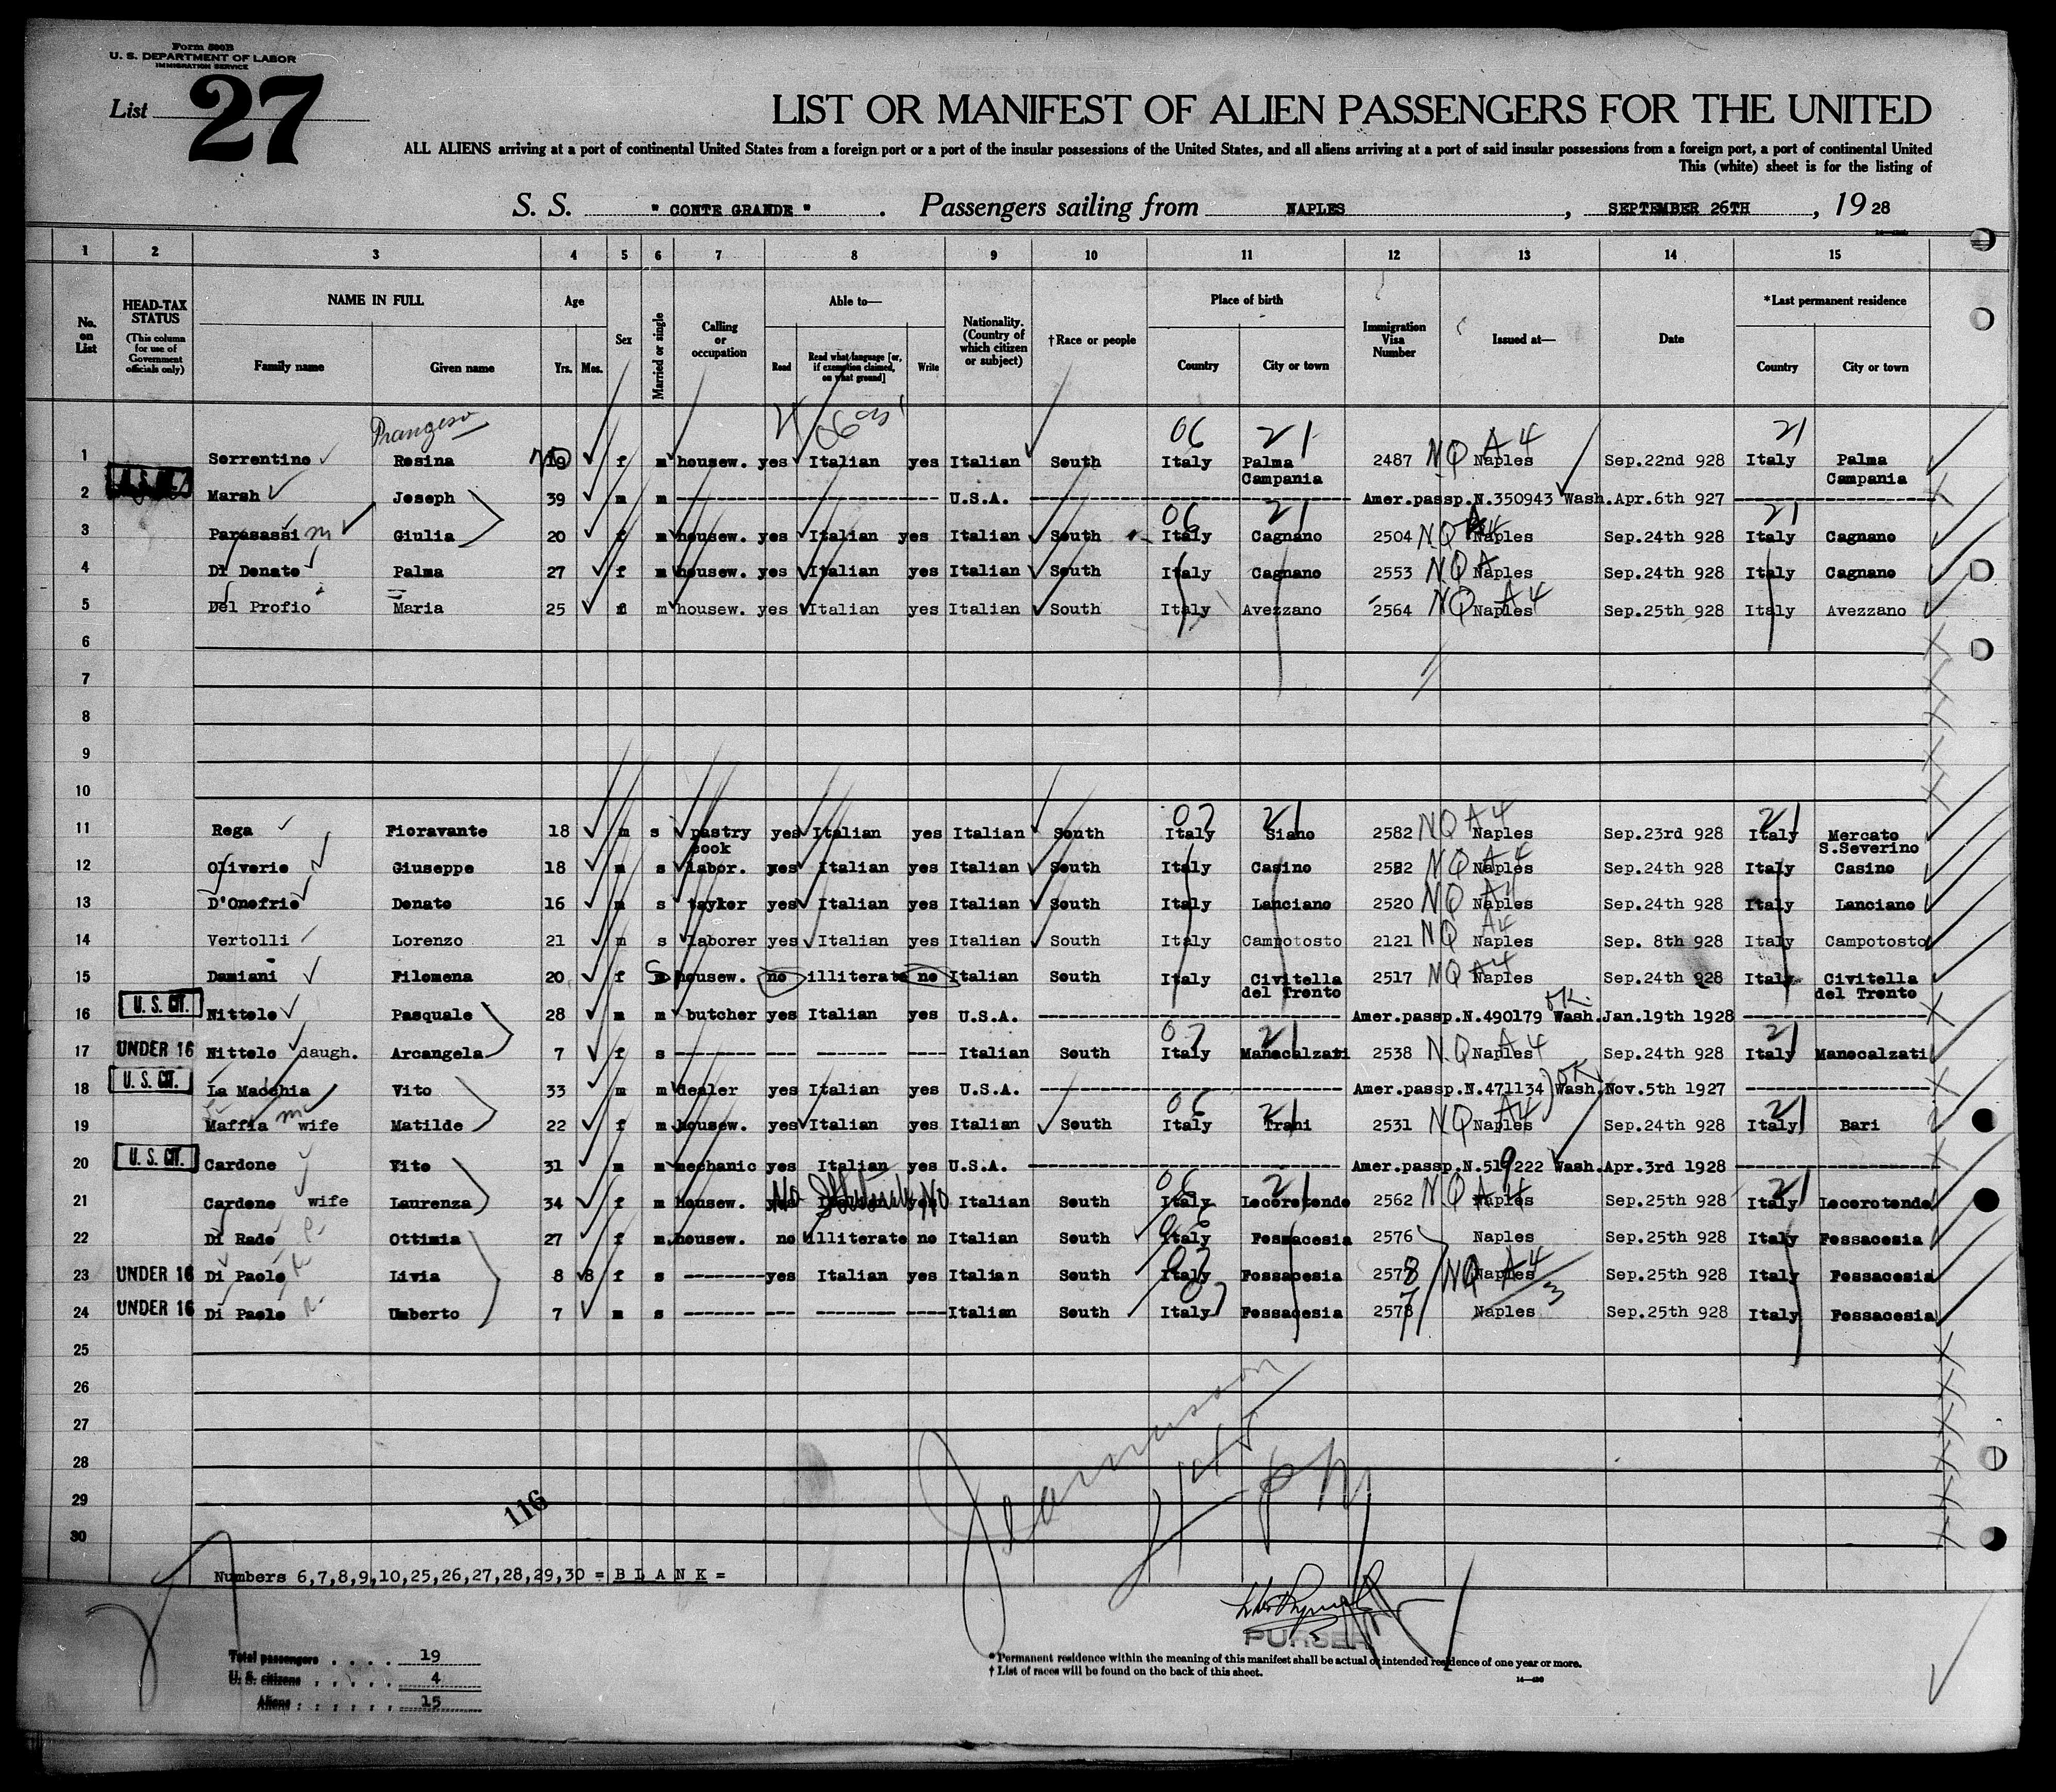 Form 500B
U. S. DEPARTMENT OF LABOR
IMMIGRATION SERVICE
List 27
LIST OR MANIFEST OF ALIEN PASSENGERS FOR THE UNITED
ALL ALIENS arriving at a port of continental United States from a foreign port or a port of the insular possessions of the United States, and all aliens arriving at a port of said insular possessions from a foreign port, a port of continental United
This (white) sheet is for the listing of
S. S. " CONTE GRANDE " . Passengers sailing from NAPLES , SEPTEMBER 26TH , 19 28
1 2 3 4 5 6 7 8 9 10 11 12 13 14 15
No. on List
HEAD-TAX STATUS
(This column for use of Government officials only)
NAME IN FULL
Family name Given name
Age
Yrs. Mos.
Sex
Married or single
Calling or occupation
Able to—
Read
Read what language [or, if exemption claimed, on what ground]
Write
Nationality. (Country of which citizen or subject)
†Race or people
Place of birth
Country City or town
Immigration Visa Number
Issued at—
Date
*Last permanent residence
Country City or town
06 21 NQ A4 21
1 Serrentino Rosina f m housew. yes Italian yes Italian South Italy Palma Campania 2487 Naples Sep.22nd 928 Italy Palma Campania
2 Marsh Joseph 39 m m U.S.A. Amer.passp.N.350943 Wash.Apr.6th 927
06 21 NQ A4 21
3 Parasassi Giulia 20 f m housew. yes Italian yes Italian South Italy Cagnano 2504 Naples Sep.24th 928 Italy Cagnano
4 Di Donato Palma 27 f m housew. yes Italian yes Italian South Italy Cagnano 2553 NQ A Naples Sep.24th 928 Italy Cagnano
5 Del Profio Maria 25 f m housew. yes Italian yes Italian South Italy Avezzano 2564 NQ A4 Naples Sep.25th 928 Italy Avezzano
6
7
8
9
10
07 21 NQ A4 21
11 Rega Fioravante 18 m s pastry cook yes Italian yes Italian South Italy Siano 2582 Naples Sep.23rd 928 Italy Mercato S.Severino
12 Oliverio Giuseppe 18 m s labor. yes Italian yes Italian South Italy Casino 2522 NQ A4 Naples Sep.24th 928 Italy Casino
13 D'Onofrio Donato 16 m s tayker yes Italian yes Italian South Italy Lanciano 2520 NQ A4 Naples Sep.24th 928 Italy Lanciano
14 Vertolli Lorenzo 21 m s laborer yes Italian yes Italian South Italy Campotosto 2121 NQ A4 Naples Sep. 8th 928 Italy Campotosto
15 Damiani Filomena 20 f S housew. no illiterate no Italian South Italy Civitella del Trento 2517 NQ A4 Naples Sep.24th 928 Italy Civitella del Trento
16 U. S. CIT. Nittolo Pasquale 28 m m butcher yes Italian yes U.S.A. Amer.passp.N.490179 OK. Wash.Jan.19th 1928
07 21 21
17 UNDER 16 Nittolo daugh. Arcangela 7 f s Italian South Italy Manocalzati 2538 N.Q A4 Naples Sep.24th 928 Italy Manocalzati
18 U. S. CIT. La Macchia Vito 33 m m dealer yes Italian yes U.S.A. Amer.passp.N.471134 OK. Wash.Nov.5th 1927
06 21 21
19 Maffia wife Matilde 22 f m housew. yes Italian yes Italian South Italy Trani 2531 NQ A4 Naples Sep.24th 928 Italy Bari
20 U. S. CIT. Cardone Vito 31 m m mechanic yes Italian yes U.S.A. Amer.passp.N.519222 Wash.Apr.3rd 1928
06 21 21
21 Cardone wife Laurenza 34 f m housew. No No Italian South Italy Locorotondo 2562 NQ A4 Naples Sep.25th 928 Italy Locorotondo
22 Di Rado Ottimia 27 f m housew. no illiterate no Italian South Italy Fossacesia 2576 Naples Sep.25th 928 Italy Fossacesia
23 UNDER 16 Di Paolo Livia 8 8 f s yes Italian yes Italian South Italy Fossacesia 2578 NQ A4 Naples Sep.25th 928 Italy Fossacesia
24 UNDER 16 Di Paolo Umberto 7 m s Italian South Italy Fossacesia 2577 3 Naples Sep.25th 928 Italy Fossacesia
25
26
27
28
29
30
116
Numbers 6,7,8,9,10,25,26,27,28,29,30 = B L A N K =
PURSER
Total passengers . . . . 19
U. S. citizens . . . . . 4
Aliens . . . . . . 15
*Permanent residence within the meaning of this manifest shall be actual or intended residence of one year or more.
†List of races will be found on the back of this sheet.